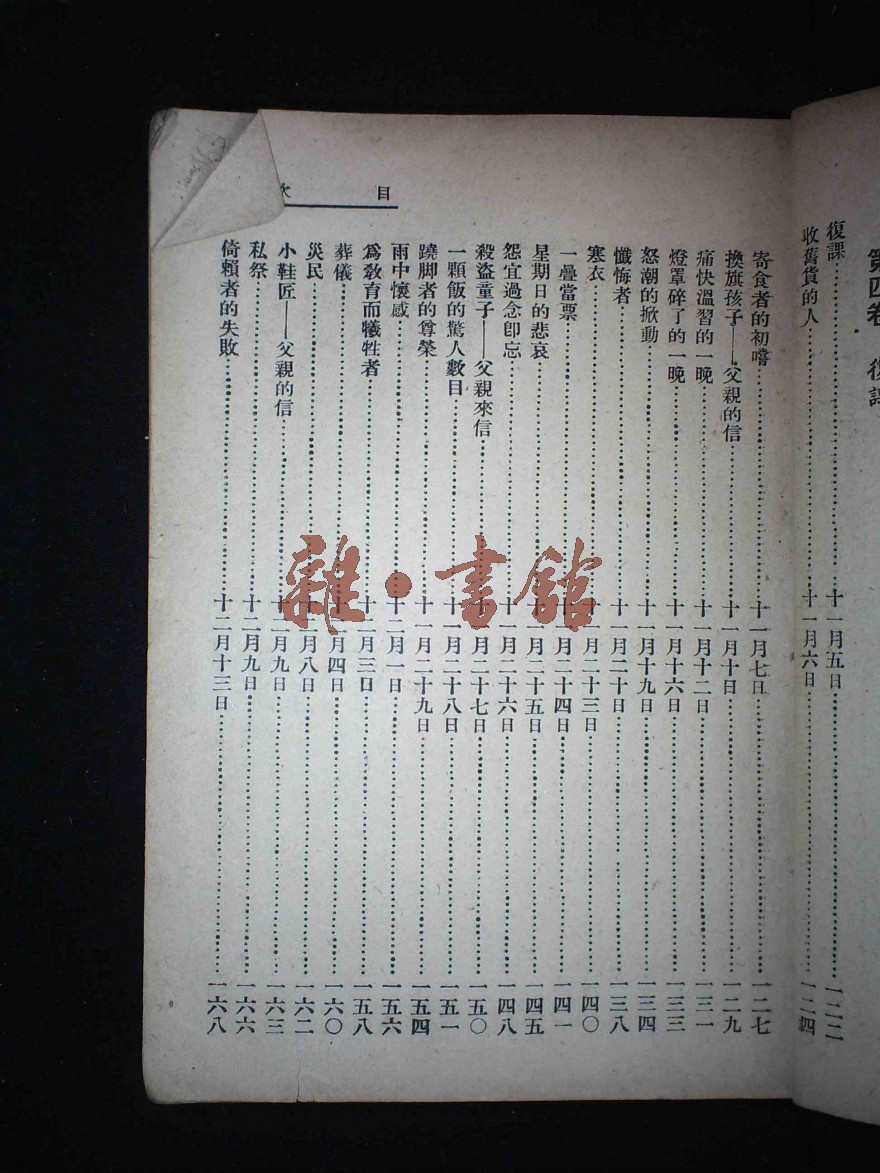 第四卷 復課
復課……十一月五日……一二二
收舊貨的人……十一月六日……一二四
目次
寄食者的初嚐……十一月七日……一二七
換旗孩子——父親的信……十一月十日……一二九
痛快溫習的一晚……十一月十二日……一三一
燈罩碎了的一晚……十一月十六日……一三三
怒潮的掀動……十一月十九日……一三四
懺悔者……十一月二十日……一三八
寒衣……十一月二十三日……一四〇
一疊當票……十一月二十四日……一四一
星期日的悲哀……十一月二十五日……一四五
怨宜過念卽忘……十一月二十六日……一四八
殺盜童子——父親來信……十一月二十七日……一五〇
一顆飯的驚人數目……十一月二十八日……一五一
蹺脚者的尊榮……十一月二十九日……一五四
雨中懷感……十二月一日……一五六
爲敎育而犧牲者……十二月三日……一五八
葬儀……十二月四日……一六〇
災民……十二月八日……一六二
小鞋匠——父親的信……十二月九日……一六三
私祭……十二月九日……一六六
倚賴者的失敗……十二月十三日……一六八
雜·書館